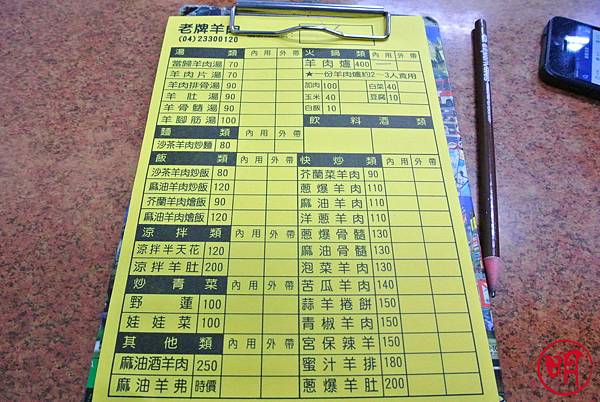 老牌羊肉
(04)23300120
湯 類 內用 外帶
當歸羊肉湯 70
羊肉片湯 70
羊肉排骨湯 90
羊肚湯 90
羊骨髓湯 90
羊腳筋湯 100
麵 類 內用 外帶
沙茶羊肉炒麵 80
飯 類 內用 外帶
沙茶羊肉炒飯 80
麻油羊肉炒飯 120
芥蘭羊肉燴飯 90
麻油羊肉燴飯 120
涼拌類 內用 外帶
涼拌半天花 120
涼拌羊肚 200
炒青菜 內用 外帶
野蓮 100
娃娃菜 100
其他類 內用 外帶
麻油酒羊肉 250
麻油羊弗 時價
火鍋類 內用 外帶
羊肉爐 400
★一份羊肉爐約2~3人食用
加肉 100 白菜 40
玉米 40 豆腐 10
白飯 10
飲料酒類
快炒類 內用 外帶
芥蘭菜羊肉 90
蔥爆羊肉 110
麻油羊肉 110
洋蔥羊肉 110
蔥爆骨髓 130
麻油骨髓 130
泡菜羊肉 130
苦瓜羊肉 140
蒜羊捲餅 150
青椒羊肉 150
宮保辣羊 150
蜜汁羊排 180
蔥爆羊肚 200
明